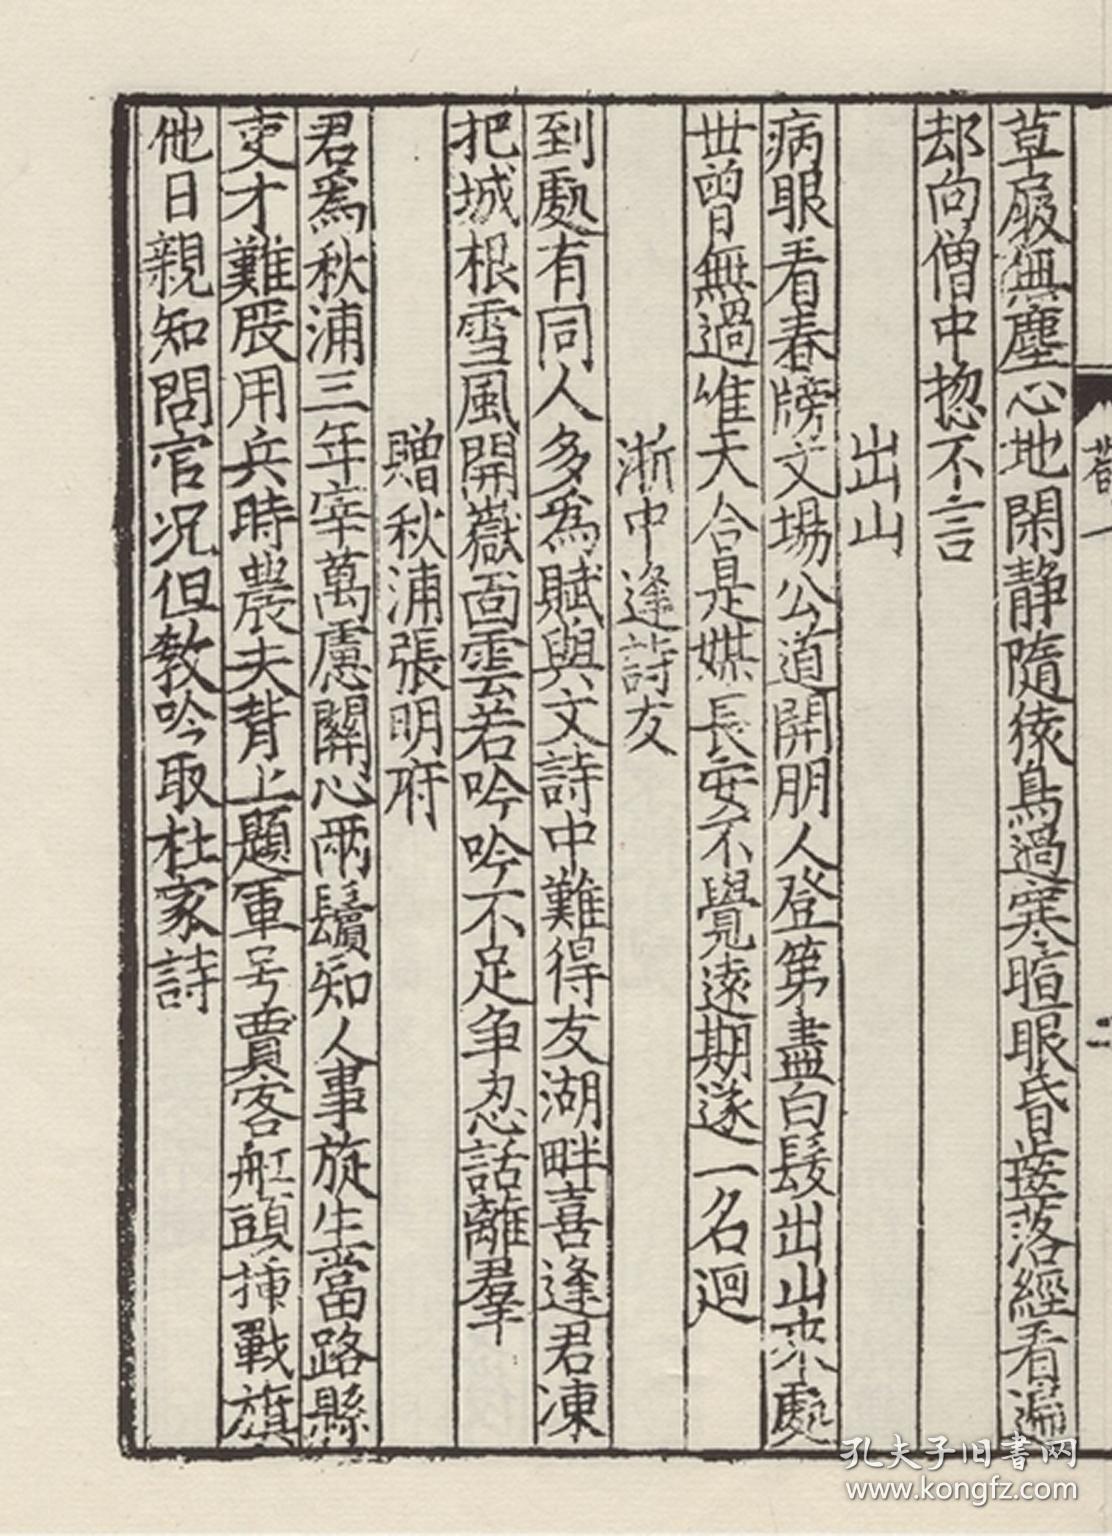 荀一
二
草屐無塵心地閑静隨猿鳥過寒暄眼昏齒落經看遍
却向僧中揔不言
出山
病眼看春牓文場公道開朋人登第盡白髮出山來處
世曾無過唯天合是媒長安不覺遠期遂一名迴
浙中逢詩友
到處有同人多爲賦與文詩中難得友湖畔喜逢君凍
把城根雪風開嶽面雲若吟吟不足争忍話離羣
贈秋浦張明府
君爲秋浦三年宰萬慮關心兩鬢知人事旋生當路縣
吏才難展用兵時農夫背上題軍号賈客舡頭插戰旗
他日親知問官况但教吟取杜家詩
孔夫子旧书网
www.kongfz.com